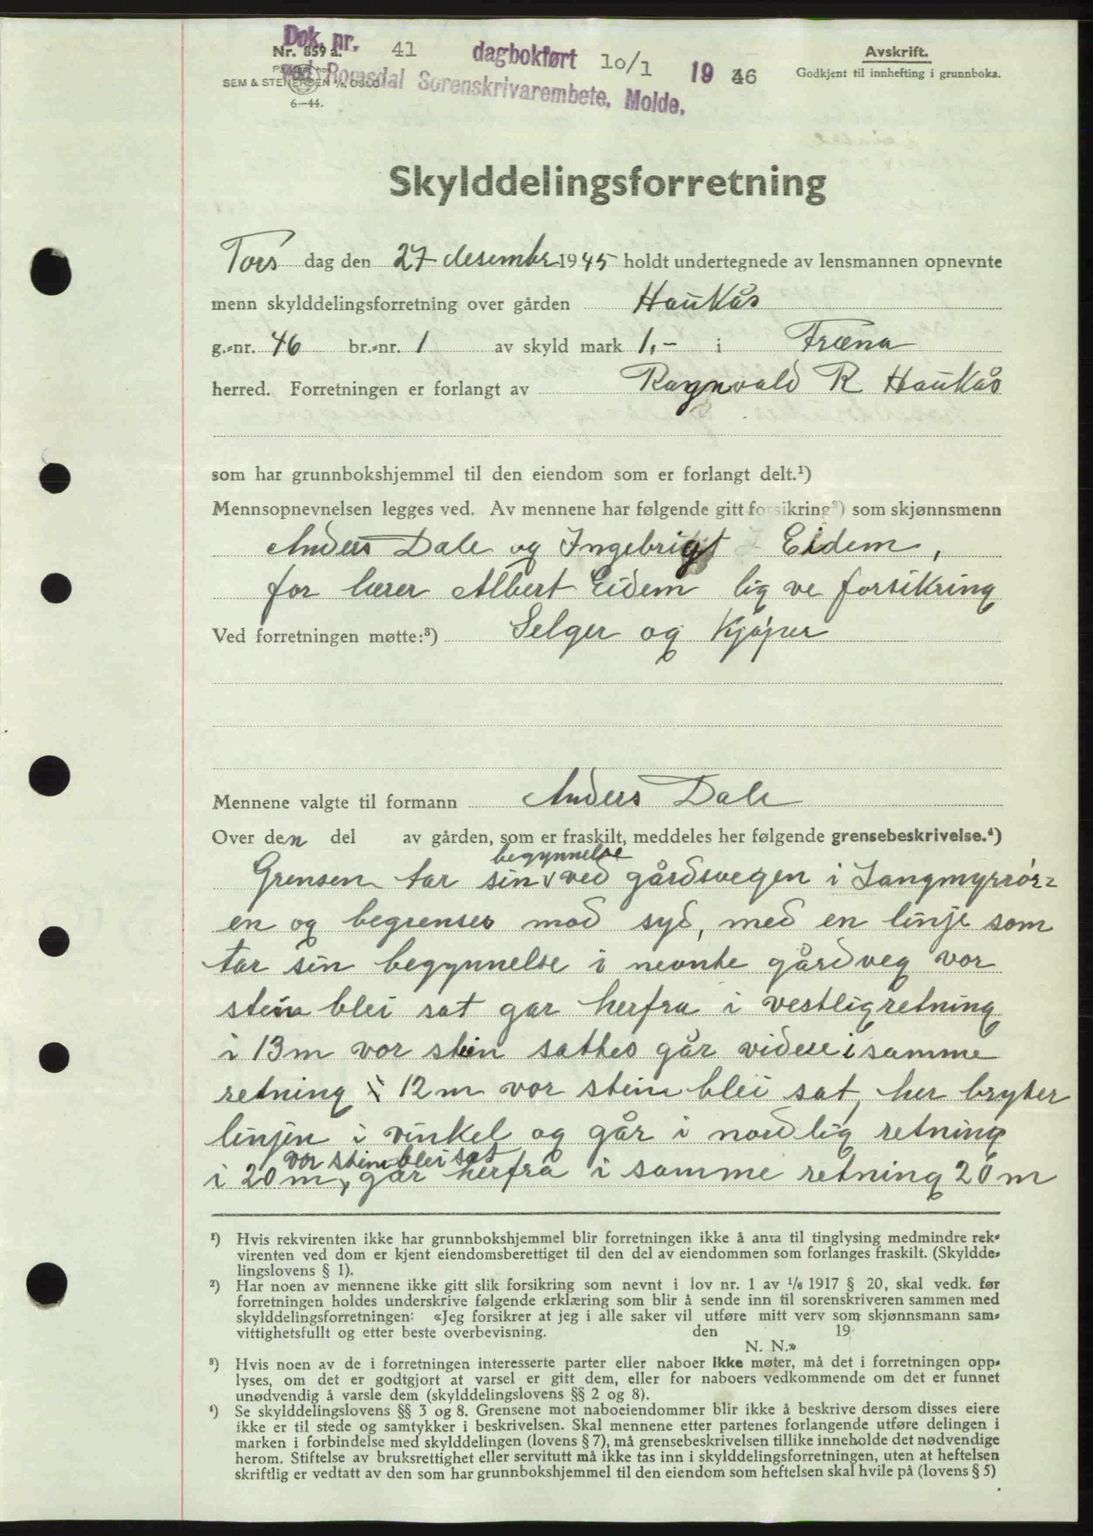 Dok. nr. 41 dagbokført 10/1 19 46
Nr. 859 a.
ved Romsdal Sorenskrivarembete, Molde.
SEM & STENERSEN A/S OSLO
6—44.
Avskrift.
Godkjent til innhefting i grunnboka.
Skylddelingsforretning
Tors dag den 27 desember 1945 holdt undertegnede av lensmannen opnevnte
menn skylddelingsforretning over gården Haukås
g.-nr. 46 br.-nr. 1 av skyld mark 1,- i Fræna
herred. Forretningen er forlangt av Ragnvald R Haukås
som har grunnbokshjemmel til den eiendom som er forlangt delt.¹)
Mennsopnevnelsen legges ved. Av mennene har følgende gitt forsikring²) som skjønnsmenn
Anders Dale og Ingebrigt Eidem,
for lærer Albert Eidem lig ve forsikring
Ved forretningen møtte:³) Selger og Kjøper
Mennene valgte til formann Anders Dale
Over den del av gården, som er fraskilt, meddeles her følgende grensebeskrivelse.⁴)
begynnelse
Grensen tar sin v ved gårdsvegen i Langmyrrør=
en og begrenses mod syd, med en linje som
tar sin begynnelse i nevnte gårdveg vor
stein blei sat gar herfra i vestlig retning
i 13 m vor stein sattes går videre i samme
retning i 12 m vor stein blei sat, her bryter
linjen i vinkel og går i nordlig retning
vor stein blei sat
i 20 m, går herfra i samme retning 20 m
¹) Hvis rekvirenten ikke har grunnbokshjemmel blir forretningen ikke å anta til tinglysing medmindre rek-
virenten ved dom er kjent eiendomsberettiget til den del av eiendommen som forlanges fraskilt. (Skyldde-
lingslovens § 1).
²) Har noen av mennene ikke gitt slik forsikring som nevnt i lov nr. 1 av 1/6 1917 § 20, skal vedk. før
forretningen holdes underskrive følgende erklæring som blir å sende inn til sorenskriveren sammen med
skylddelingsforretningen: «Jeg forsikrer at jeg i alle saker vil utføre mitt verv som skjønnsmann sam-
vittighetsfullt og etter beste overbevisning. den 19
N. N.»
³) Hvis noen av de i forretningen interesserte parter eller naboer ikke møter, må det i forretningen opp-
lyses, om det er godtgjort at varsel er gitt dem, eller for naboers vedkommende om det er funnet
unødvendig å varsle dem (skylddelingslovens §§ 2 og 8).
⁴) Se skylddelingslovens §§ 3 og 8. Grensene mot naboeiendommer blir ikke å beskrive dersom disses eiere
ikke er til stede og samtykker i beskrivelsen. Skal mennene etter partenes forlangende utføre delingen i
marken i forbindelse med skylddelingen (lovens § 7), må grensebeskrivelsen tillike inneholde det nødvendige
herom. Stiftelse av bruksrettighet eller servitutt må ikke tas inn i skylddelingsforretningen, uten at heftelsen
skriftlig er vedtatt av den som har grunnbokshjemmel til den eiendom som heftelsen skal hvile på (lovens § 5)